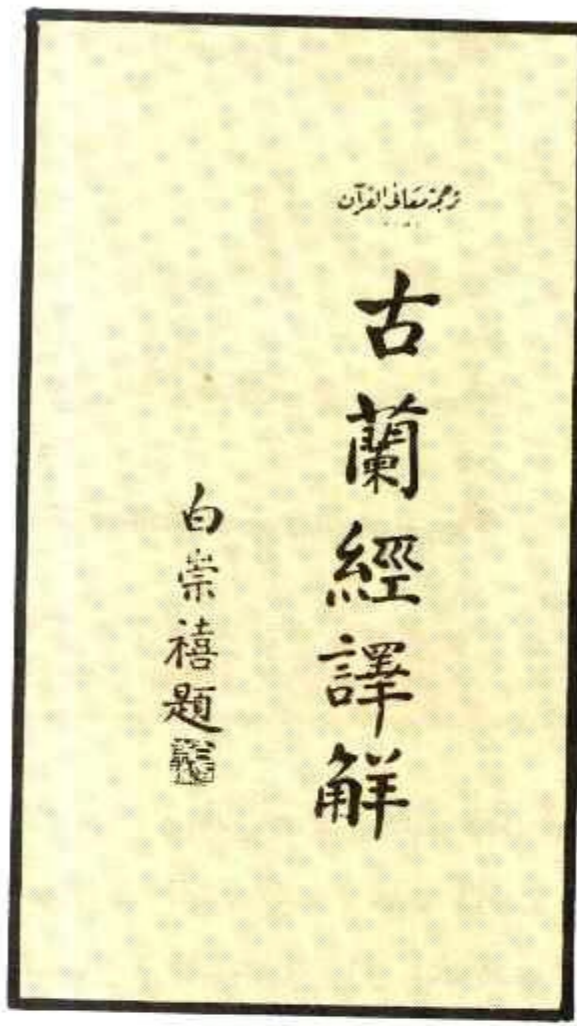 ترجمة معاني القرآن
古蘭經譯解
白崇禧題